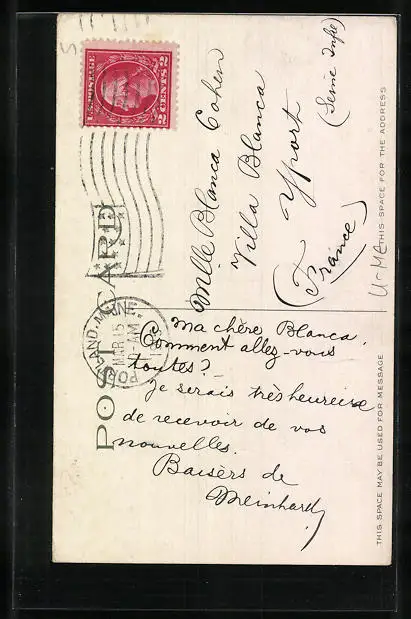 U.S. POSTAGE
2 CENTS 2
PORTLAND, MAINE.
MAR 15
AM
POST CARD
THIS SPACE FOR THE ADDRESS
THIS SPACE MAY BE USED FOR MESSAGE
Mlle Blanca Cohen
Villa Blanca
Yport
(Seine Infre)
(France)
Ma chère Blanca,
Comment allez-vous
toutes?
Je serais très heureuse
de recevoir de vos
nouvelles.
Baisers de
Meinhard